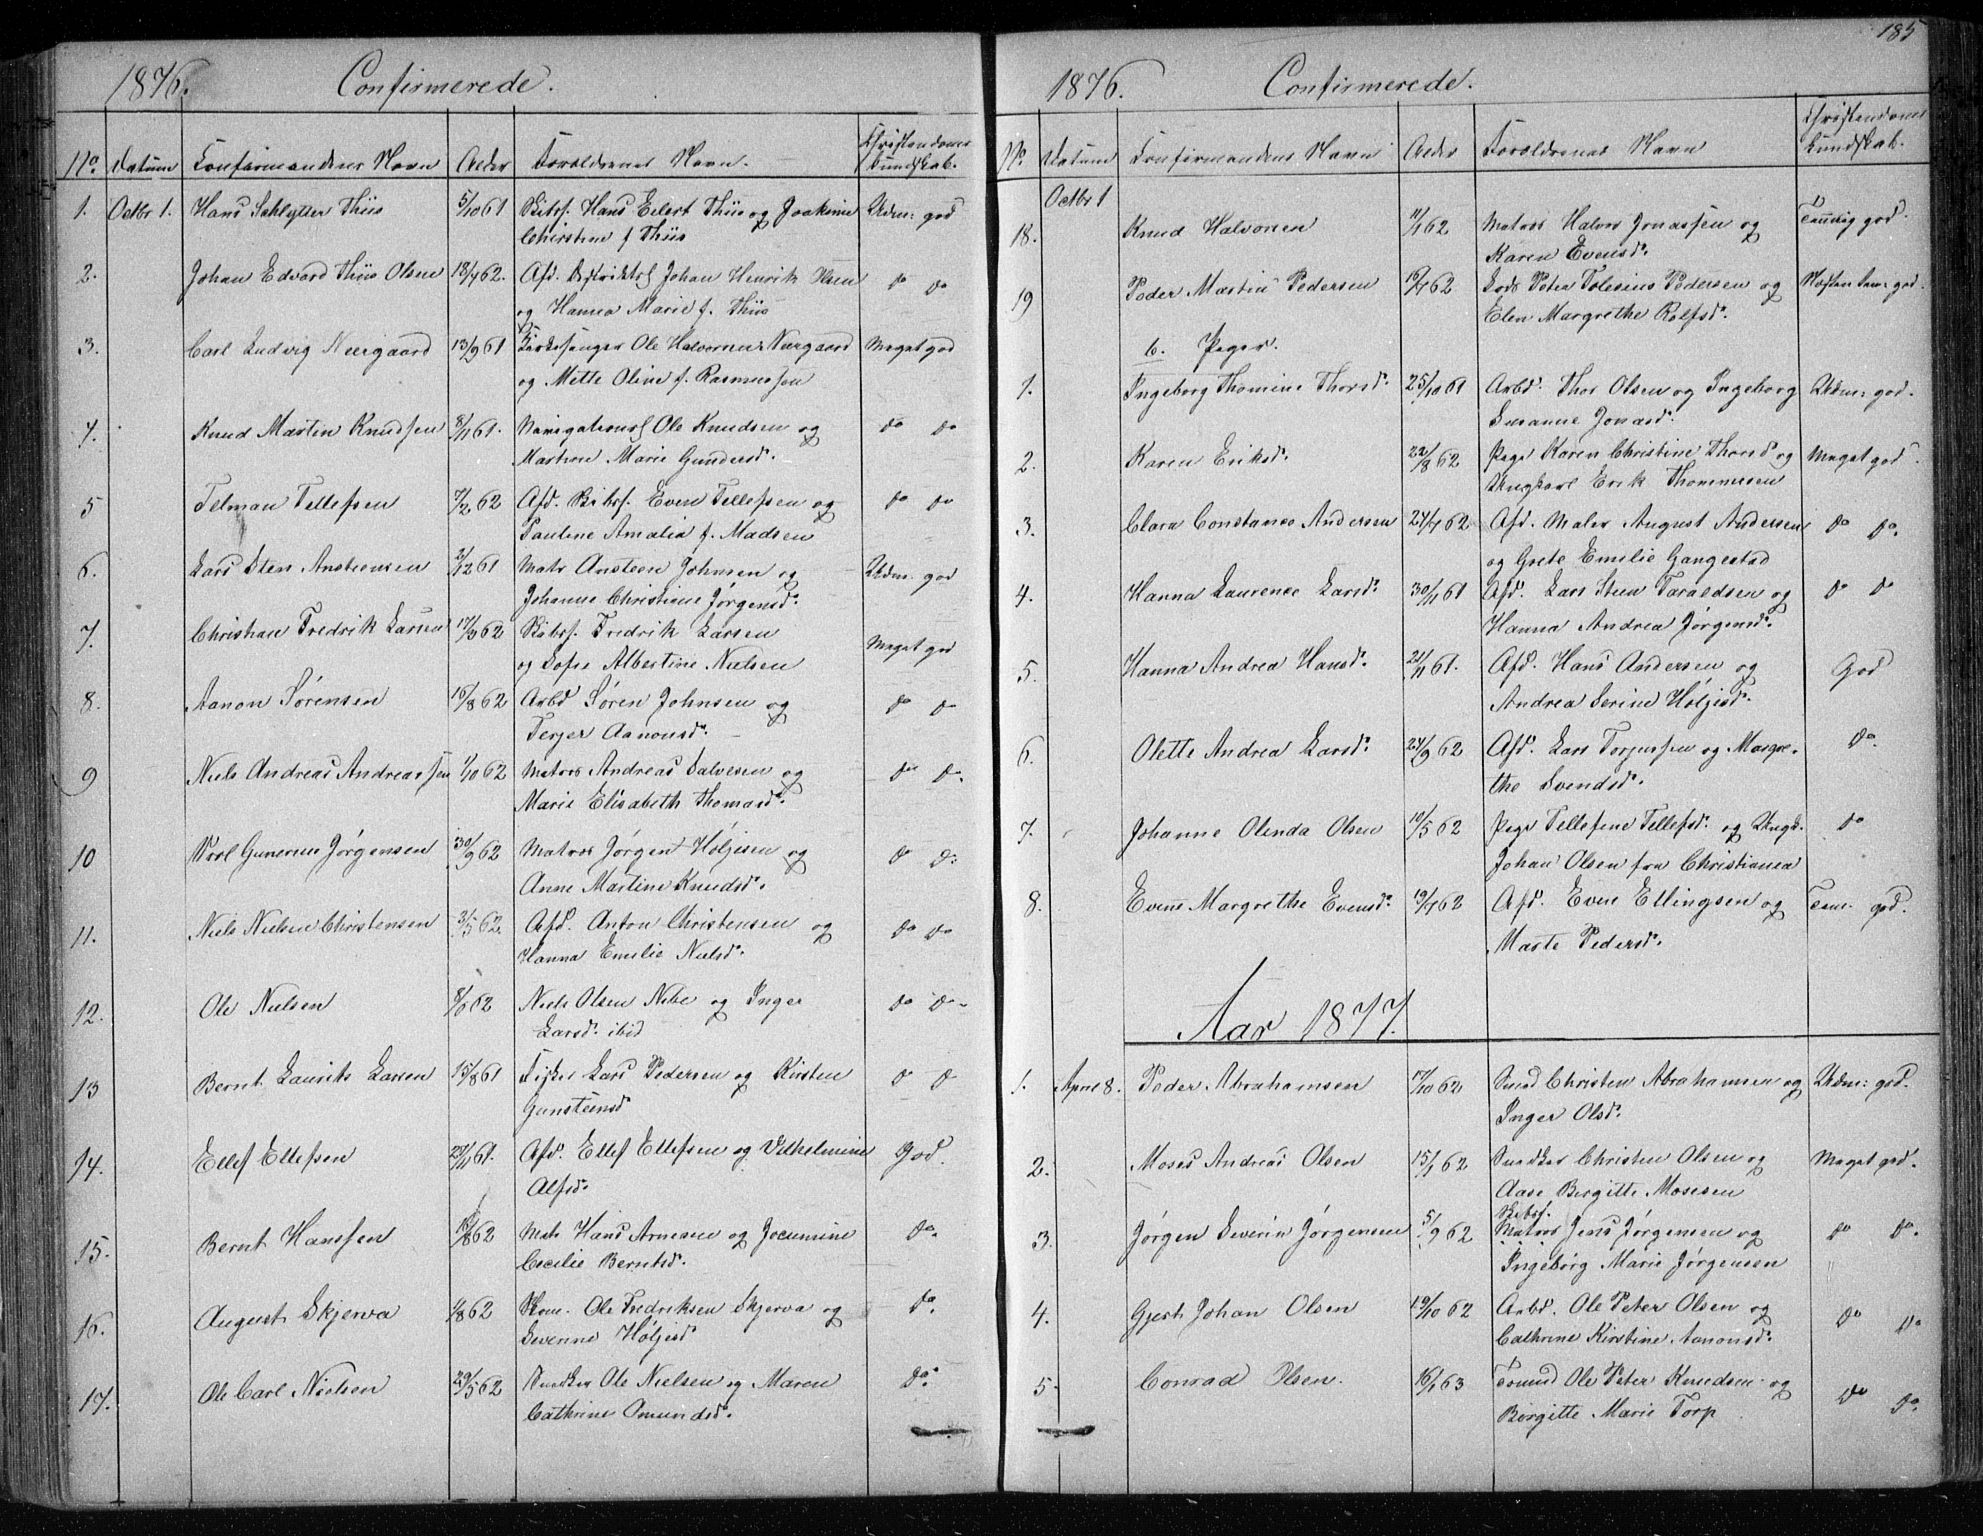 1876. Confirmerede.
No. Datum Confirmandens Navn Alder Forældrenes Navn. Christendoms Kundskab.
1. Octbr 1. Hans Schlytter Thiis 5/10 61 Skibsf. Hans Eilert Thiis og Joakine Udm: god
Christine f. Thiis
2. Johan Edvard Thiis Olsen 18/4 62. Afd. Distriktsl Johan Henrik Olsen do do
og Hanna Marie f. Thiis
3. Carl Ludvig Neergaard 13/9 61 Kirkesanger Ole Halvorsen Neergaard Meget god
og Mette Oline f. Rasmussen
4. Knud Martin Knudsen 8/11 61. Navigationsl Ole Knudsen og do do
Marthine Marie Gundersd.
5 Telman Tellefsen 7/2 62 Afd. Skibsf. Even Tellefsen og do do
Pauline Amalia f. Madsen
6. Lars Sten Anstensen 2/12 61 Matr Ansteen Johnsen og Udm. god
Johanne Christiane Jørgensd.
7. Christian Fredrik Larsen 17/3 62 Skibsf. Fredrik Larsen Meget god
og Sofie Albertine Nielsen
8. Aanon Sørensen 16/8 62 Arbd Søren Johnsen og do do
Terjer Aanonsd.
9 Niels Andreas Andreassen 1/10 62 Matros Andreas Salvesen og do do.
Marie Elisabeth Thomasd.
10 Gunerius Jørgensen 30/9 62 Matros Jørgen Høljesen og do do
Anne Martine Knudsd.
11. Niels Nielsen Christensen 3/5 62. Afd. Anton Christensen og do do
Hanna Emilie Nielsd.
12. Ole Nielsen 62 Niels Olsen og Inger do do
Larsd. ibid
13 Bernt Laurits Larsen 15/8 61 Fisker Lars Pedersen og Kirsten do do
Gunsteinsd
14. Ellef Ellefsen 23/11 61. Afd. Ellef Ellefsen og Vilhelmine God.
Alfsd.
15. Bernt Hanssen 16/8 62 Matr Hans Arnesen og Jocumine do.
Cecilie Berntsd.
16. August Skjerva 1/8 62 Skom. Ole Fredriksen Skjerva og do.
Severine Høljesd
17. Ole Carl Nielsen 29/5 62 Snedker Ole Nielsen og Maren do.
Cathrine Omundsd.
185
1876. Confirmerede.
No. Datum Confirmandens Navn Alder Forældrenes Navn Christendoms Kundskab.
Octbr 1
18. Knud Halvorsen 11/1 62 Matros Halvor Jonassen og Temmelig god.
Karen Evensd.
19 Peder Martin Pedersen 62 Lods Peter Tolesius Pedersen og Næsten tem: god.
Elen Margrethe Rolfsd.
b. Piger.
1. Ingeborg Thomine Thorsd. 25/10 61 Arbd. Thor Olsen og Ingeborg Udm: god.
Susanne Jonasd.
2. Karen Eriksd. 22/8 62 Pige Karen Christine Thorsd og Meget god.
Ungkarl Erik Thommesen
3. Clara Constance Andersen 24/4 62 Afd. Maler August Andersen do do.
og Grete Emilie Gangestad
4. Hanna Laurence Larsd. 30/11 61 Afd. Lars Steen Taraldsen og do do
Hanna Andrea Jørgensd.
5. Hanna Andrea Hansd. 21/11 61. Afd. Hans Andersen og God
Andrea Serine Høljesd.
6. Olette Andrea Larsd. 24/9 62 Afd. Lars Torjussen og Margre- do.
the Svendsd.
7. Johanne Olinda Olsen 10/5 62 Pige Tellefine Tellefsd. og Ungk. do
Johan Olsen fra Christiania
8. Evine Margrethe Evensd. 19/4 62 Afd. Even Ellingsen og Tem. god.
Marte Pedersd.
Aar 1877.
1. April 8. Peder Abrahamsen 17/10 62 Smed Christen Abrahamsen og Udm: god.
Inger Olsd.
2. Moses Andreas Olsen 15/1 62 Snedker Christen Olsen og Meget god.
Aase Birgitte Mosesen
Skibsf.
3. Jørgen Severin Jørgensen 5/9 62 Matros Jens Jørgensen og do do.
Ingeborg Marie Jørgensen
4. Gjert Johan Olsen 19/10 62 Arbd. Ole Peter Olsen og do do
Cathrine Kirstine Aanonsd.
5. Conrad Olsen. 16/1 63 Tømmd Ole Peter Knudsen og do do.
Birgitte Marie Torp